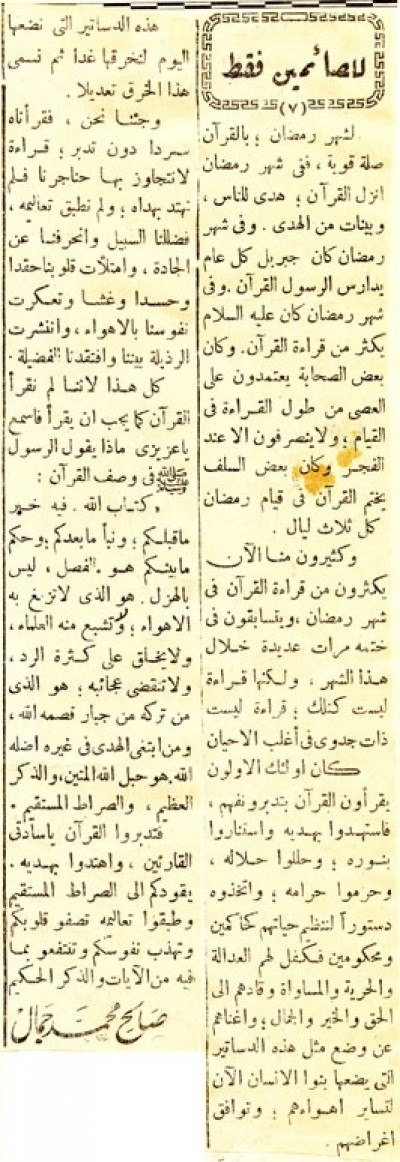 للصائمين فقط
(٧)
لشهر رمضان ؛ بالقرآن
صلة قوية ، ففى شهر رمضان
انزل القرآن ؛ هدى للناس ،
وبينات من الهدى . وفى شهر
رمضان كان جبريل كل عام
يدارس الرسول القرآن . وفى
شهر رمضان كان عليه السلام
يكثر من قراءة القرآن . وكان
بعض الصحابة يعتمدون على
العصى من طول القراءة فى
القيام ؛ ولا ينصرفون الا عند
الفجر وكان بعض السلف
يختم القرآن فى قيام رمضان
كل ثلاث ليال .
وكثيرون منا الآن
يكثرون من قراءة القرآن فى
شهر رمضان ، ويتسابقون فى
ختمه مرات عديدة خلال
هذا الشهر ، ولكنها قراءة
ليست كتلك ؛ قراءة ليست
ذات جدوى فى أغلب الاحيان
كان اولئك الاولون
يقرأون القرآن بتدبر ونفهم ،
فاستهدوا بهديه واستناروا
بنوره ؛ وحللوا حلاله ،
وحرموا حرامه ؛ واتخذوه
دستوراً لتنظيم حياتهم كحاكمين
ومحكومين فكفل لهم العدالة
والحرية والمساواة وقادهم الى
الحق والخير والجمال ؛ واغناهم
عن وضع مثل هذه الدساتير
التى يضعها بنوا الانسان الآن
لتساير اهواءهم ؛ وتوافق
اغراضهم .
هذه الدساتير التى نضعها
اليوم لنخرقها غداً ثم نسمى
هذا الخرق تعديلا .
وجئنا نحن ، فقرأناه
سردا دون تدبر ؛ قراءة
لانتجاوز بها حناجرنا فلم
نهتد بهداه ؛ ولم نطبق تعاليمه ،
فضللنا السبيل وانحرفنا عن
الجادة ، وامتلأت قلوبنا حقدا
وحسدا وغشا وتعكرت
نفوسنا بالاهواء ، وانتشرت
الرذيلة بيننا وافتقدنا الفضيلة .
كل هذا لاننا لم نقرأ
القرآن كما يجب ان يقرأ فاسمع
ياعزيزى ماذا يقول الرسول
ﷺ فى وصف القرآن :
« كتاب الله . فيه خبر
ماقبلكم ؛ ونبأ مابعدكم ؛ وحكم
مابينكم هو الفصل ، ليس
بالهزل . هو الذى لاتزيغ به
الاهواء ؛ ولا تشبع منه العلماء ،
ولايخلق على كثرة الرد ،
ولا تنقضى عجائبه ؛ هو الذى
من تركه من جبار قصمه الله ،
ومن ابتغى الهدى فى غيره اضله
الله . هو حبل الله المتين ، والذكر
العظيم ، والصراط المستقيم .
فتدبروا القرآن ياسادتى
القارئين ، واهتدوا بهديه .
يقودكم الى الصراط المستقيم
وطبقوا تعاليمه تصفو قلوبكم
وتهذب نفوسكم وتنتفعو بما
فيه من الآيات والذكر الحكيم
صالح محمد جمال